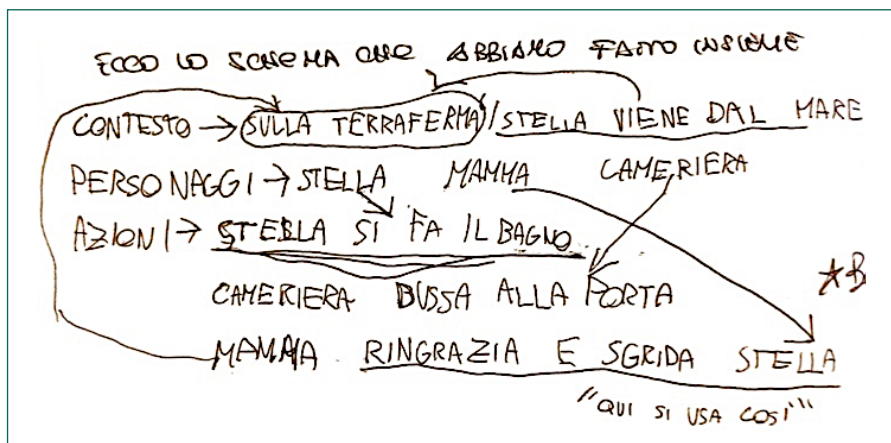 ECCO LO SCHEMA CHE ABBIAMO FATTO INSIEME
CONTESTO → SULLA TERRAFERMA / STELLA VIENE DAL MARE
PERSONAGGI → STELLA MAMMA CAMERIERA
AZIONI → STELLA SI FA IL BAGNO
CAMERIERA BUSSA ALLA PORTA
*B
MAMMA RINGRAZIA E SGRIDA STELLA
"QUI SI USA COSÌ"